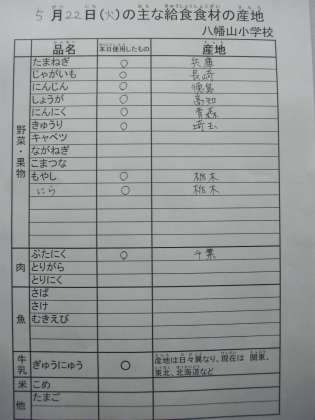 5月22日(火)の主な給食食材の産地
八幡山小学校
品名 本日使用したもの 産地
野菜・果物
たまねぎ ○ 兵庫
じゃがいも ○ 長崎
にんじん ○ 徳島
しょうが ○ 高知
にんにく ○ 青森
きゅうり ○ 埼玉
キャベツ
ながねぎ
こまつな
もやし ○ 栃木
にら ○ 栃木
肉
ぶたにく ○ 千葉
とりがら
とりにく
魚
さば
さけ
むきえび
牛乳 ぎゅうにゅう ○ 産地は日々異なり、現在は 関東、
東北、北海道など
米 こめ
他 たまご